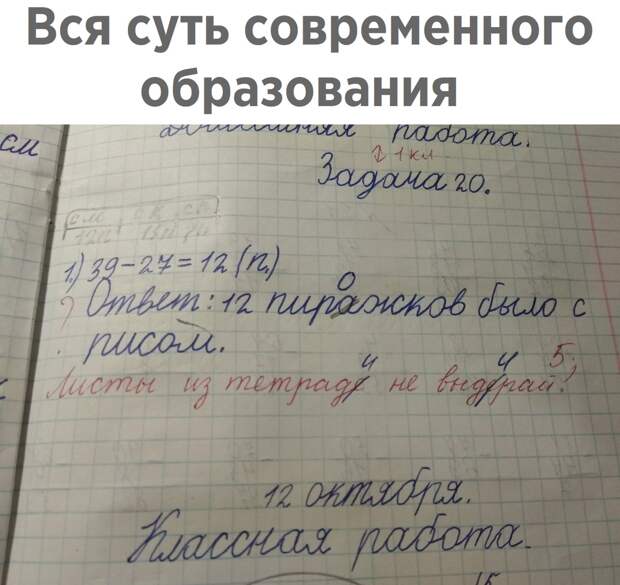 Вся суть современного
образования
см
Домашняя работа.
↕ 1 кл.
Задача 20.
1.) 39-27=12 (п.)
о
Ответ: 12 пиражков было с
рисом.
и и 5;
Листы из тетраде не выдерай!
12 октября.
Классная работа.
15